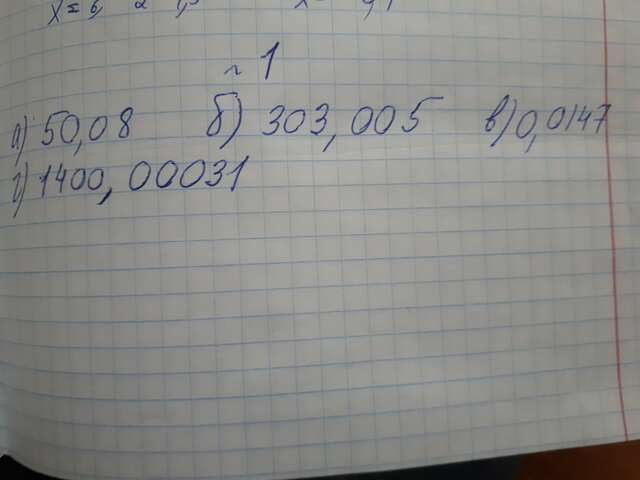 ~ 1
а) 50,08 б) 303,005 в) 0,0147
г) 1400,00031